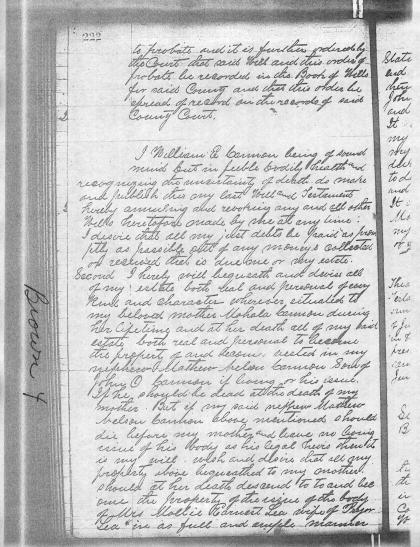 222
to probate and it is further ordered by
the Court that said Will and this order of
probate be recorded in the Book of Wills
for said County and that this order be
spread of record on the records of said
County Court.
I William E Cannon being of sound
mind but in feeble bodily health and
recognizing the uncertainty of death do make
and publish this my last Will and Testament
hereby annulling and revoking any and all other
Wills heretofore made by me at any time:
I desire that all my just debts be paid as prom
ptly as possible out of any moneys collected
or received that is due me or my estate.
Second I hereby will bequeath and devise all
of my estate both real and personal of every
kind and character wherever situated to
my beloved mother Mahala Cannon during
her lifetime and at her death all of my said
estate both real and personal to become
the property of and become vested in my
nephew Mathew Nelson Cannon Son of
John O Cannon if living or his issue.
If he should be dead at the death of my
mother. But if my said nephew Mathew
Nelson Cannon above mentioned should
die before my mother and leave no living
issue of his body as his legal heirs then it
is my will wish and desire that all my
property above bequeathed to my mother
should at her death descend to and bec
ome the property of the issue of the body
of Mrs Mollie Lea wife of
Lea in as full and ample manner
Brown
State
and
John
and
It
my
my
and
It
my